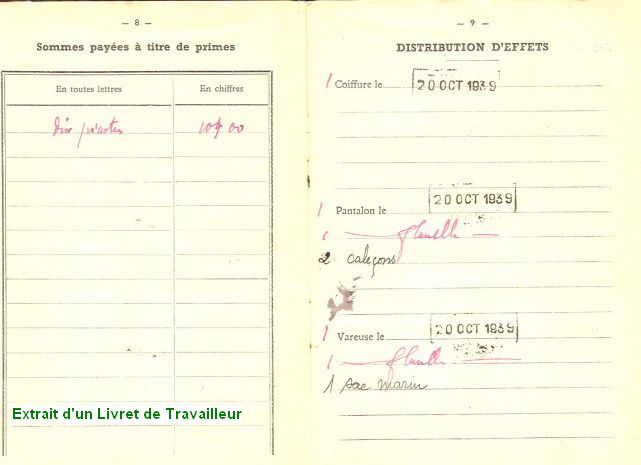 — 8 —
Sommes payées à titre de primes
En toutes lettres
En chiffres
dix piastres
10$00
Extrait d'un Livret de Travailleur
— 9 —
DISTRIBUTION D'EFFETS
1 Coiffure le 20 OCT 1939
1 Pantalon le 20 OCT 1939
1 flanelle
2 caleçons
1 Vareuse le 20 OCT 1939
1 flanelle
1 sac marin